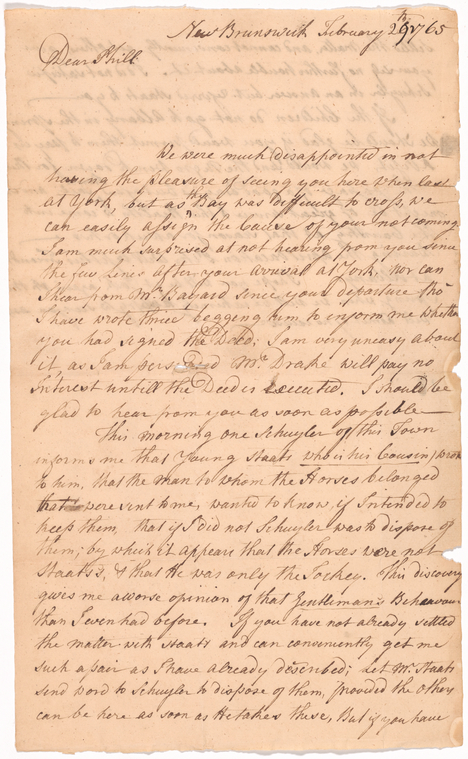 New Brunswick February 29th 1765
Dear Phill
We were much disappointed in not
having the pleasure of seeing you here when last
at York, but as th Bay was difficult to cross, we
can easily assign the Cause of your not coming.
I am much surprised at not hearing from you since
the few Lines after your arrival at York, nor can
I hear from Mr. Bayard since your departure tho'
I have wrote thrice begging him to inform me whether
you had signed the Deed; I am very uneasy about
it as I am persuaded Mr. Drake will pay no
Interest untill the Deed is executed. I should be
glad to hear from you as soon as possible
This morning one Schuyler of this Town
informs me that Young Staats who is his Cousin, wrote
to him, that the man to whom the Horses belonged
that were sent to me, wanted to know if I intended to
keep them, that if I did not Schuyler was to dispose of
them; by which it appears that the Horses were not
Staats's, & that He was only the Jockey. This discovery
gives me a worse opinion of that Gentleman's Behaviour
than I even had before. If you have not already settled
the matter with Staats and can conveniently get me
such a pair as I have already described; Let Mr. Staats
send word to Schuyler to dispose of them, provided the others
can be here as soon as He takes these, But if you have